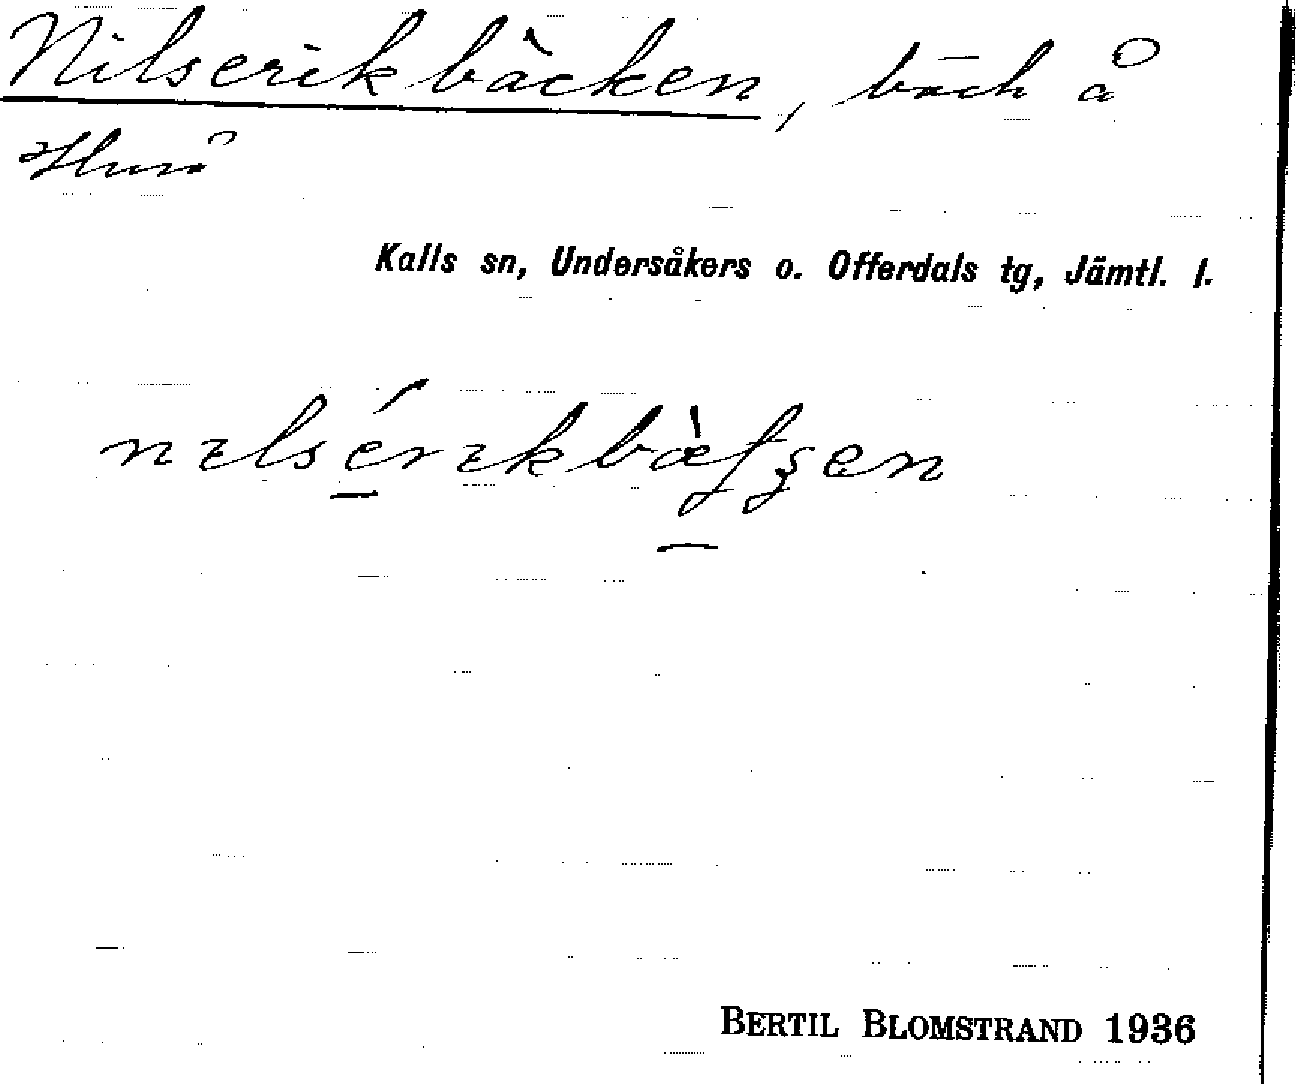 Nilserikbäcken, bäck å
Kalls sn, Undersåkers o. Offerdals tg, Jämtl. l.
BERTIL BLOMSTRAND 1936